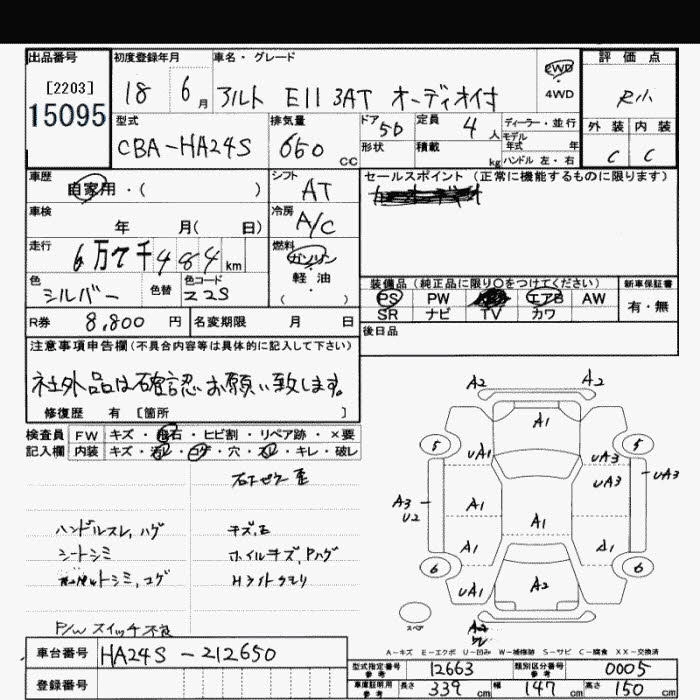 出品番号
[2203]
15095
初度登録年月
18 6 月
車名・グレード
アルト E11 3AT オーディオ付
2WD
4WD
評価点
R小
外装 内装
C C
型式
CBA-HA24S
排気量
660 CC
ドア 5D
形状
定員 4 人
積載 kg
ディーラー・並行
モデル
年式 年
ハンドル 左・右
車歴
自家用・( )
シフト
AT
車検
年 月( 日)
冷房
A/C
走行
6万7千484 km
燃料
ガソリン
軽・油
( )
色
シルバー
色替
色コード
Z2S
R券 8,800 円
名変期限 月 日
セールスポイント(正常に機能するものに限ります)
装備品(純正品に限り○をつけてください)
PS PW TV エアB AW
SR ナビ カワ
新車保証書
有・無
後日品
注意事項申告欄(不具合内容等は具体的に記入して下さい)
社外品は確認お願い致します。
修復歴 有 [箇所 ]
検査員
記入欄
FW キズ・飛石・ヒビ割・リペア跡・×要
内装 キズ・汚レ・コゲ・穴・スレ・キレ・破レ
ハンドルスレ,ハゲ
シートシミ
シミ,コゲ
P/W スイッチ不良
キズ,石
ホイルキズ,Pハゲ
Hライトクモリ
A2 A2
A1
5 5
UA1 UA3
UA3 UA3
A3
U2
A1 A1
A1 A1
6 6
UA1 A2 UA1
スペア
A-キズ E-エクボ U-凹み W-補修跡 S-サビ C-腐食 XX-交換済
車台番号 HA24S-212650
登録番号
型式指定番号
参考
12663
類別区分番号
参考
0005
車庫証明用
参考
長さ 339 cm 幅 147 cm 高さ 150 cm